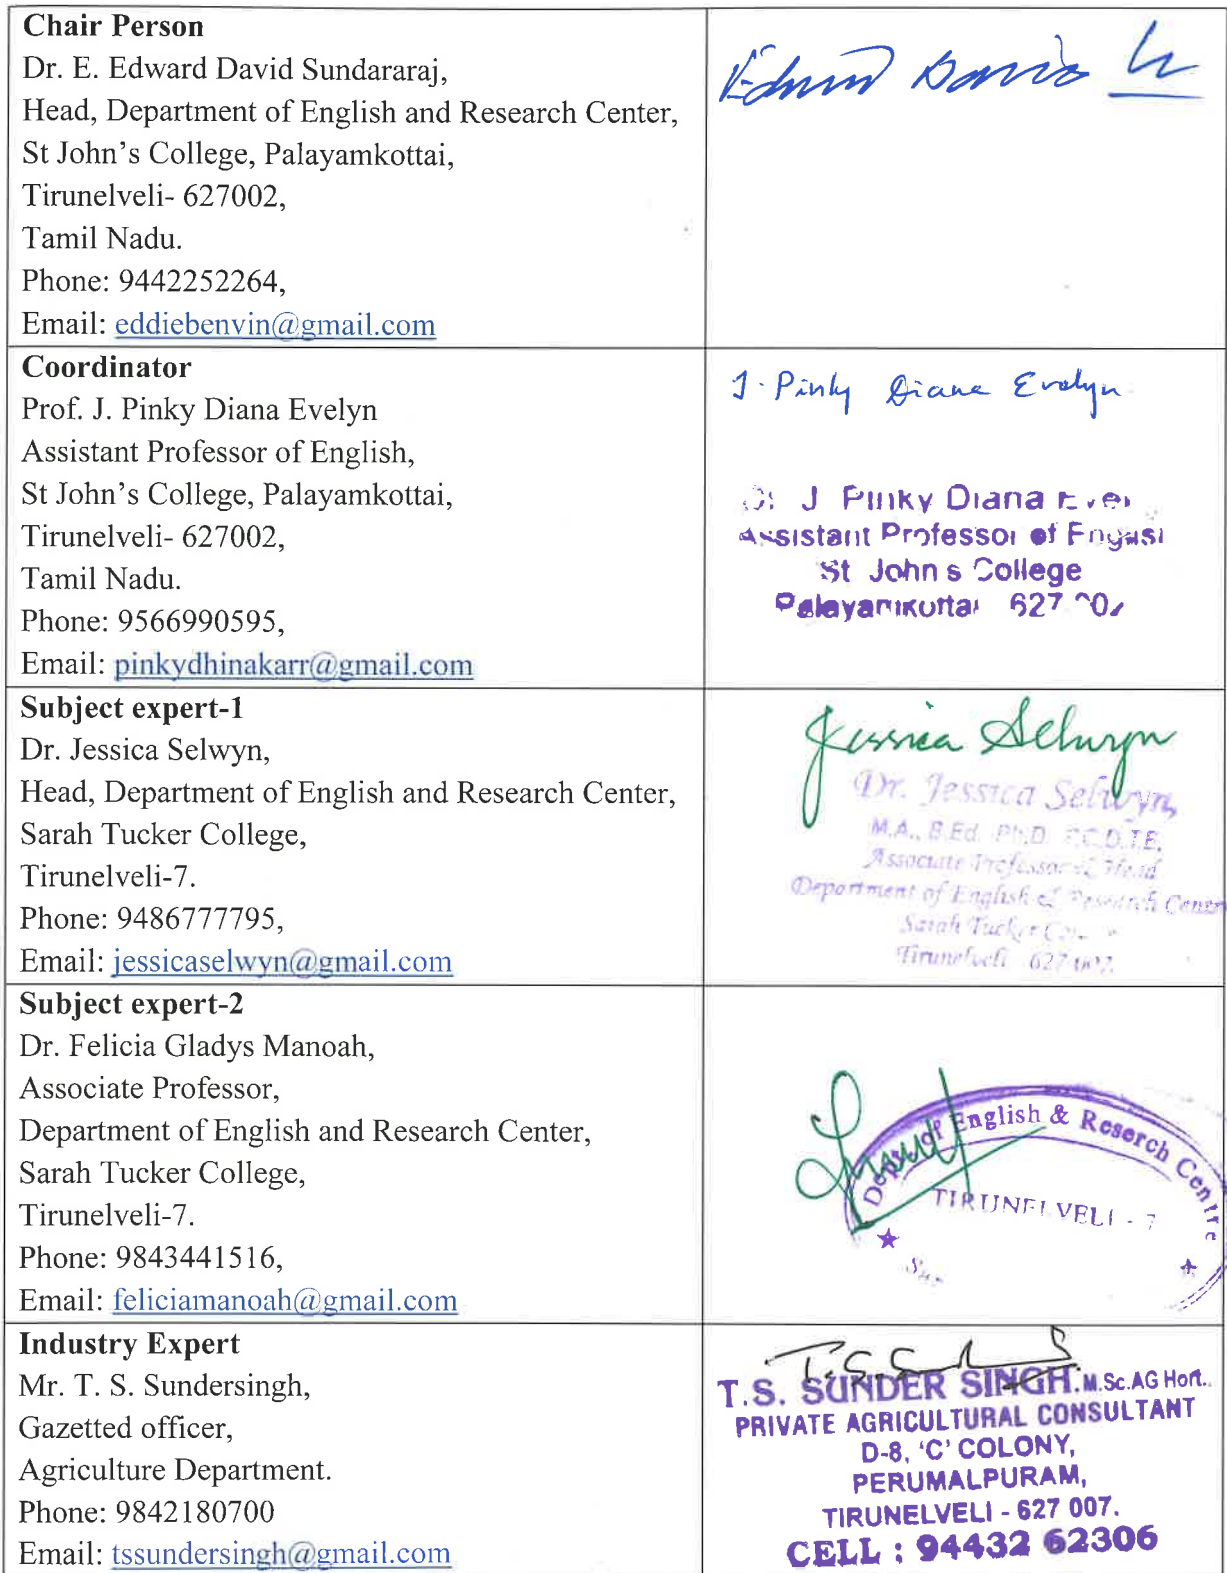 Chair Person
Dr. E. Edward David Sundararaj,
Head, Department of English and Research Center,
St John's College, Palayamkottai,
Tirunelveli- 627002,
Tamil Nadu.
Phone: 9442252264,
Email: eddiebenvin@gmail.com
Edward David
Coordinator
Prof. J. Pinky Diana Evelyn
Assistant Professor of English,
St John's College, Palayamkottai,
Tirunelveli- 627002,
Tamil Nadu.
Phone: 9566990595,
Email: pinkydhinakarr@gmail.com
J. Pinky Diana Evelyn
J Pinky Diana
Assistant Professor of
St John s College
Palayamkottai 627
Subject expert-1
Dr. Jessica Selwyn,
Head, Department of English and Research Center,
Sarah Tucker College,
Tirunelveli-7.
Phone: 9486777795,
Email: jessicaselwyn@gmail.com
Jessica Selwyn
Dr. Jessica Selwyn,
M.A., B.Ed. Ph.D.
Associate Professor & Head
Department of English & Research Centre
Sarah Tucker
Tirunelveli 627 007.
Subject expert-2
Dr. Felicia Gladys Manoah,
Associate Professor,
Department of English and Research Center,
Sarah Tucker College,
Tirunelveli-7.
Phone: 9843441516,
Email: feliciamanoah@gmail.com
of English & Reserch Centre
TIRUNELVELI - 7
Industry Expert
Mr. T. S. Sundersingh,
Gazetted officer,
Agriculture Department.
Phone: 9842180700
Email: tssundersingh@gmail.com
T.S. SUNDER SINGH. M.Sc.AG Hort..
PRIVATE AGRICULTURAL CONSULTANT
D-8, 'C' COLONY,
PERUMALPURAM,
TIRUNELVELI - 627 007.
CELL : 94432 62306